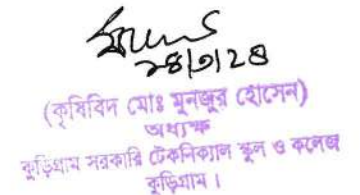 ২৪|৩|২৪
(কৃষিবিদ মোঃ মুনজুর হোসেন)
অধ্যক্ষ
কুড়িগ্রাম সরকারি টেকনিক্যাল স্কুল ও কলেজ
কুড়িগ্রাম।